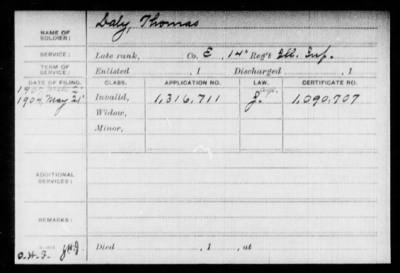 Daly, Thomas
NAME OF SOLDIER:
SERVICE: Late rank, Co. E, 14" Reg't Ill. Inf.
TERM OF SERVICE: Enlisted , 1 Discharged , 1
DATE OF FILING. CLASS. APPLICATION NO. LAW. CERTIFICATE NO.
1904 May 21" Invalid, 1,316,711 1,090,707
Widow,
Minor,
ADDITIONAL SERVICES:
REMARKS:
Died , 1 , at